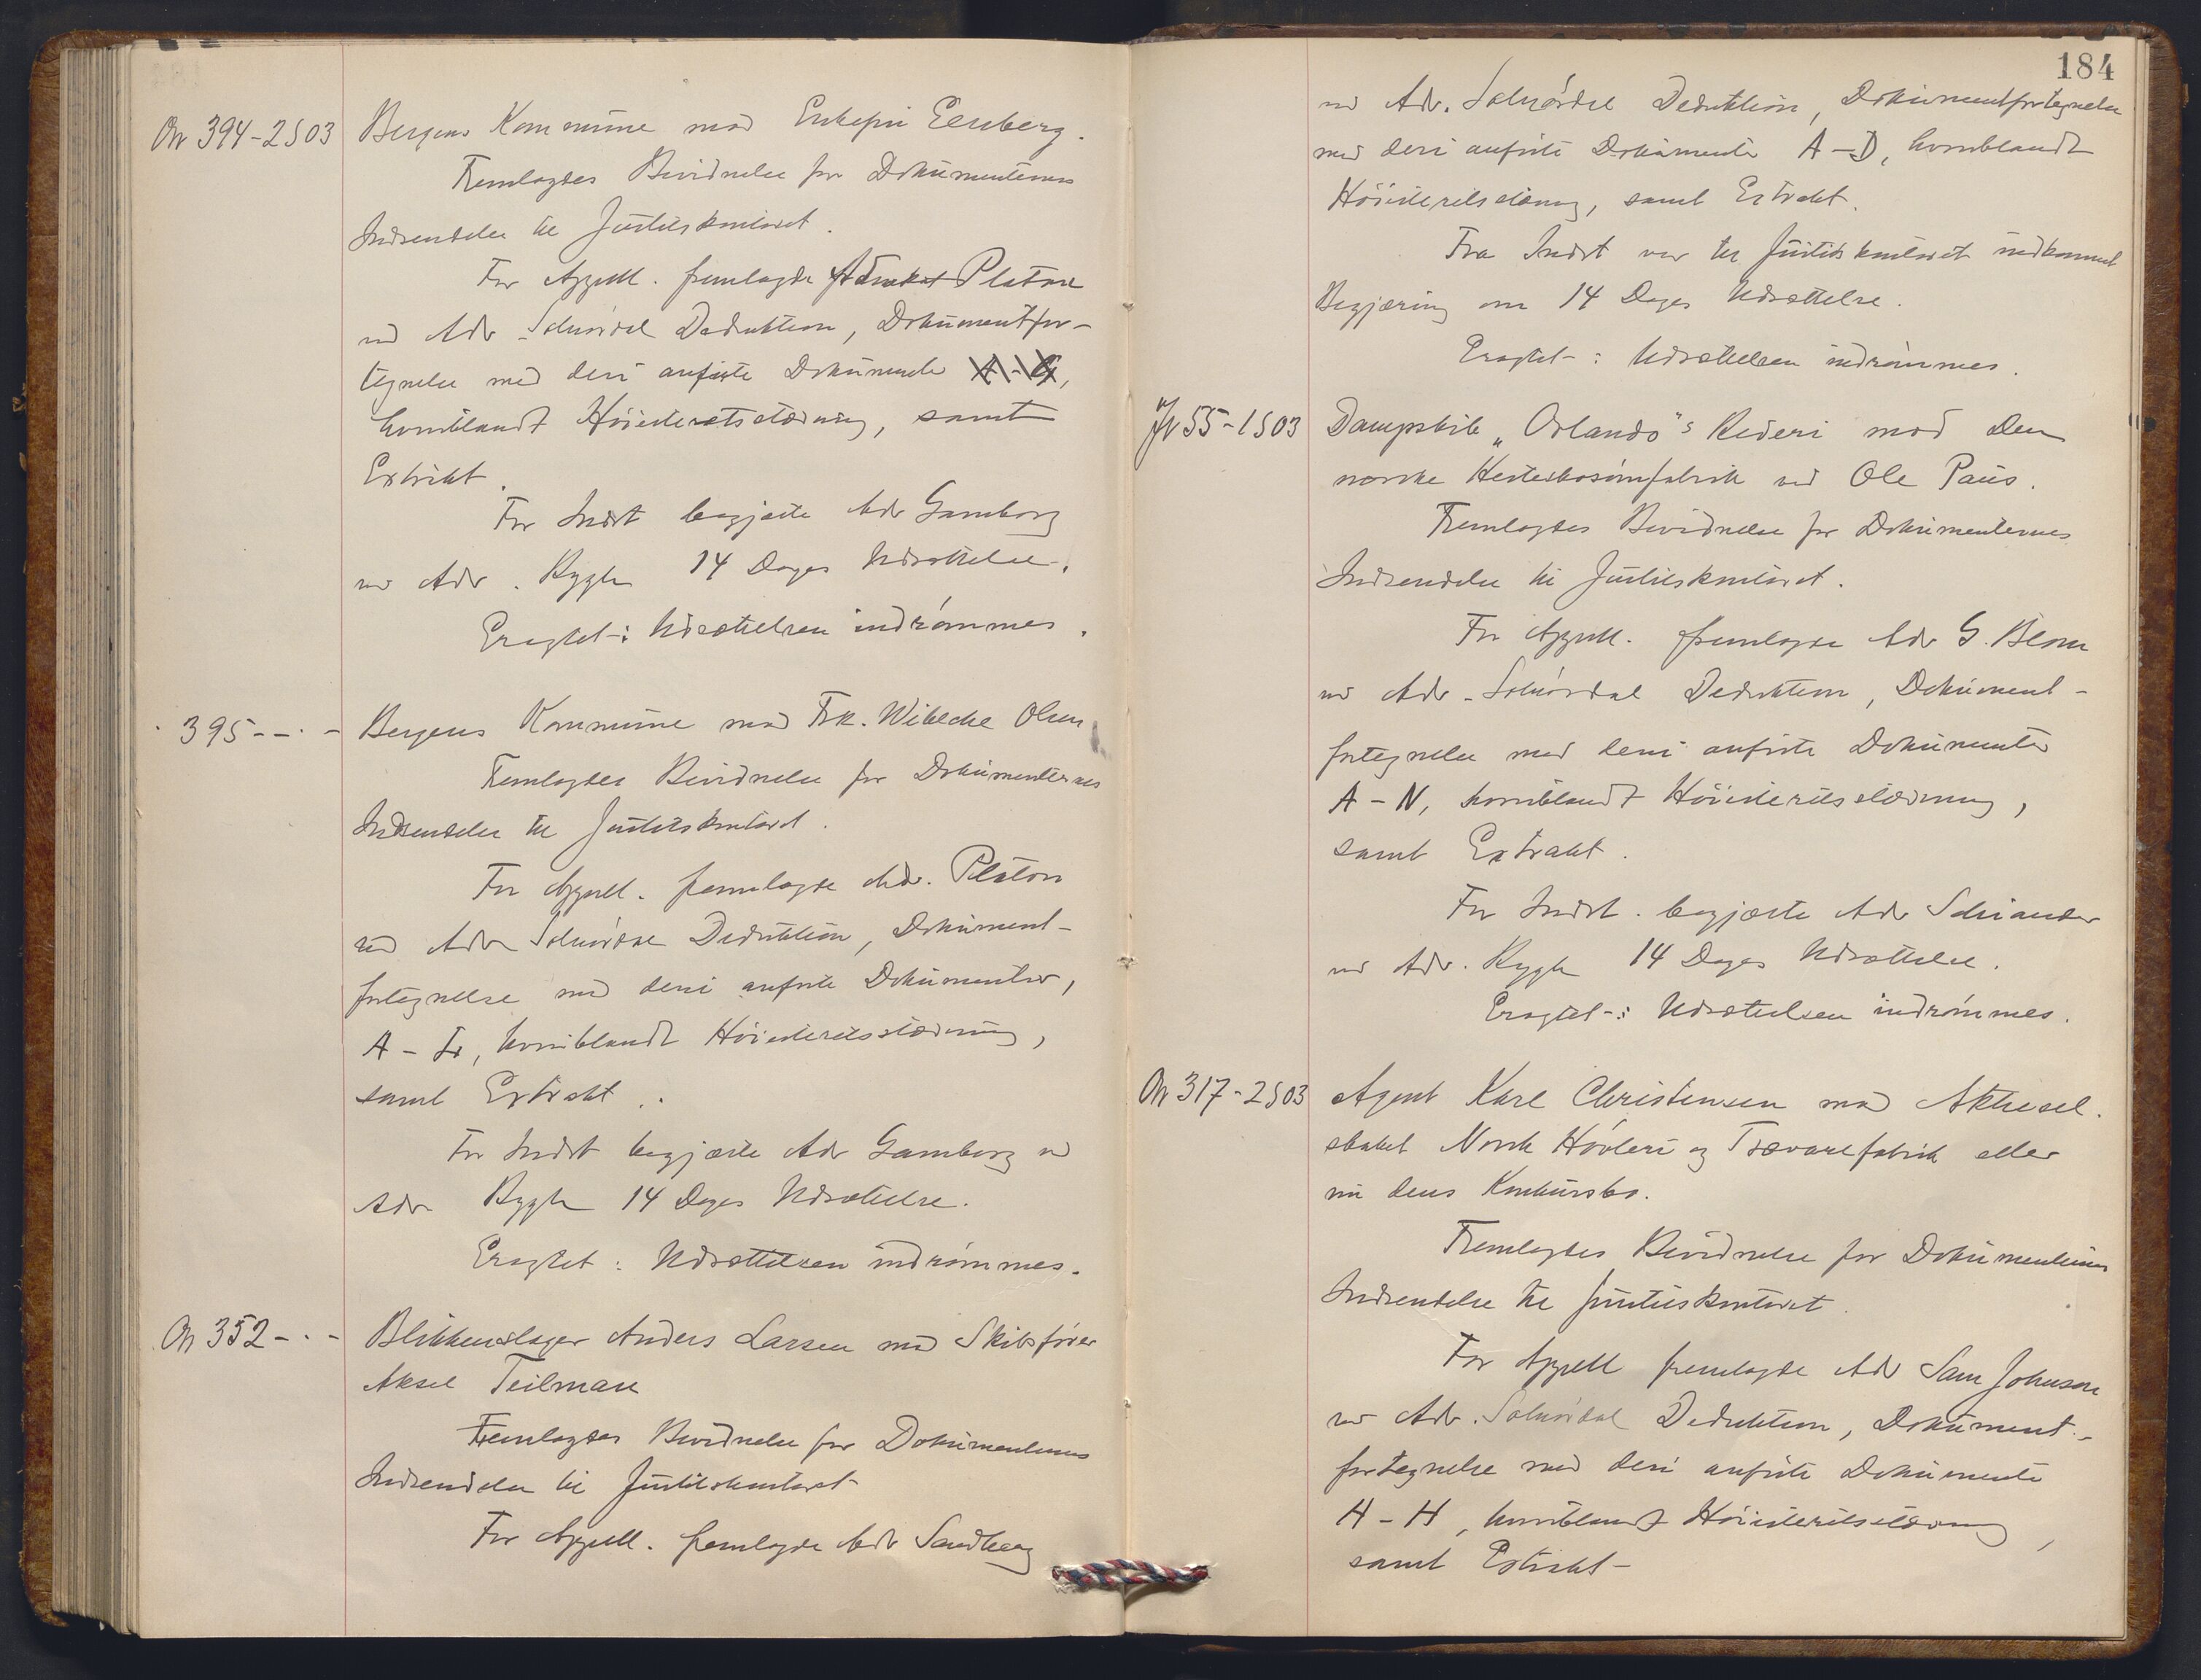 On 394-2S03 Bergens Kommune mod Enkefru Eenberg.
Fremlagdes Bevidnelse for Dokumenternes
Indsendelse til Justitskontoret.
For Appell. fremlagde Advokat Platou
ved Adv. Solnørdal Deduktion, Dokumentfor-
tegnelse med deri anførte Dokumenter A-G,
hvoriblandt Höiesteretsstævning, samt
Extrakt.
For Indst begjærte Adv Gamborg
ved Adv. Rygh 14 Dages Udsættelse.
Eragtet: Udsættelsen indrømmes.
395 - - - Bergens Kommune mod Frk. Wibecke Olsen
Fremlagdes Bevidnelse for Dokumenternes
Indsendelse til Justitskontoret.
For Appell. fremlagde Adv. Platou
ved Adv Solnørdal Deduktion, Dokument-
fortegnelse med deri anførte Dokumenter,
A - L, hvoriblandt Höiesteretsstævning,
samt Extrakt.
For Indst begjærte Adv Gamborg v
Adv Rygh 14 Dages Udsættelse.
Eragtet: Udsættelsen indrømmes.
On 352 - - - Blikkenslager Anders Larsen mod Skibsfører
Aksel Teilman
Fremlagdes Bevidnelse for Dokumenternes
Indsendelse til Justitskontoret
For Appell. fremlagde Adv Sandberg
184
ved Adv. Solnørdal Deduktion, Dokumentfortegnelse
med deri anførte Dokumenter A-D, hvoriblandt
Höiesteretsstævning, samt Extrakt.
Fra Indst var til Justitskontoret indkommet
Begjæring om 14 Dages Udsættelse.
Eragtet: Udsættelsen indrømmes.
55-1S03 Dampskib „Orlando"s Rederi mod Den
norske Hesteskosømfabrik ved Ole Paus.
Fremlagdes Bevidnelse for Dokumenternes
Indsendelse til Justitskontoret.
For Appell. fremlagde Adv G. Blom
ved Adv. Solnørdal Deduktion, Dokument-
fortegnelse med deri anførte Dokumenter
A - N, hvoriblandt Höiesteretsstævning,
samt Extrakt.
For Indst. begjærte Adv Schiander
ved Adv. Rygh 14 Dages Udsættelse.
Eragtet: Udsættelsen indrømmes.
On 317-2S03 Agent Karl Christensen mod Aktiesel-
skabet Norsk Høvleri og Trævarefabrik eller
nu dens Konkursbo.
Fremlagdes Bevidnelse for Dokumenternes
Indsendelse til Justitskontoret.
For Appell fremlagde Adv Sam Johnson
ved Adv. Solnørdal Deduktion, Dokument-
fortegnelse med deri anførte Dokumenter
A - H, hvoriblandt Höiesteretsstævning,
samt Extrakt -